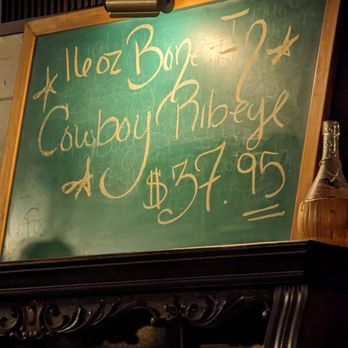 16oz Bone-In
Cowboy Ribeye
$37.95